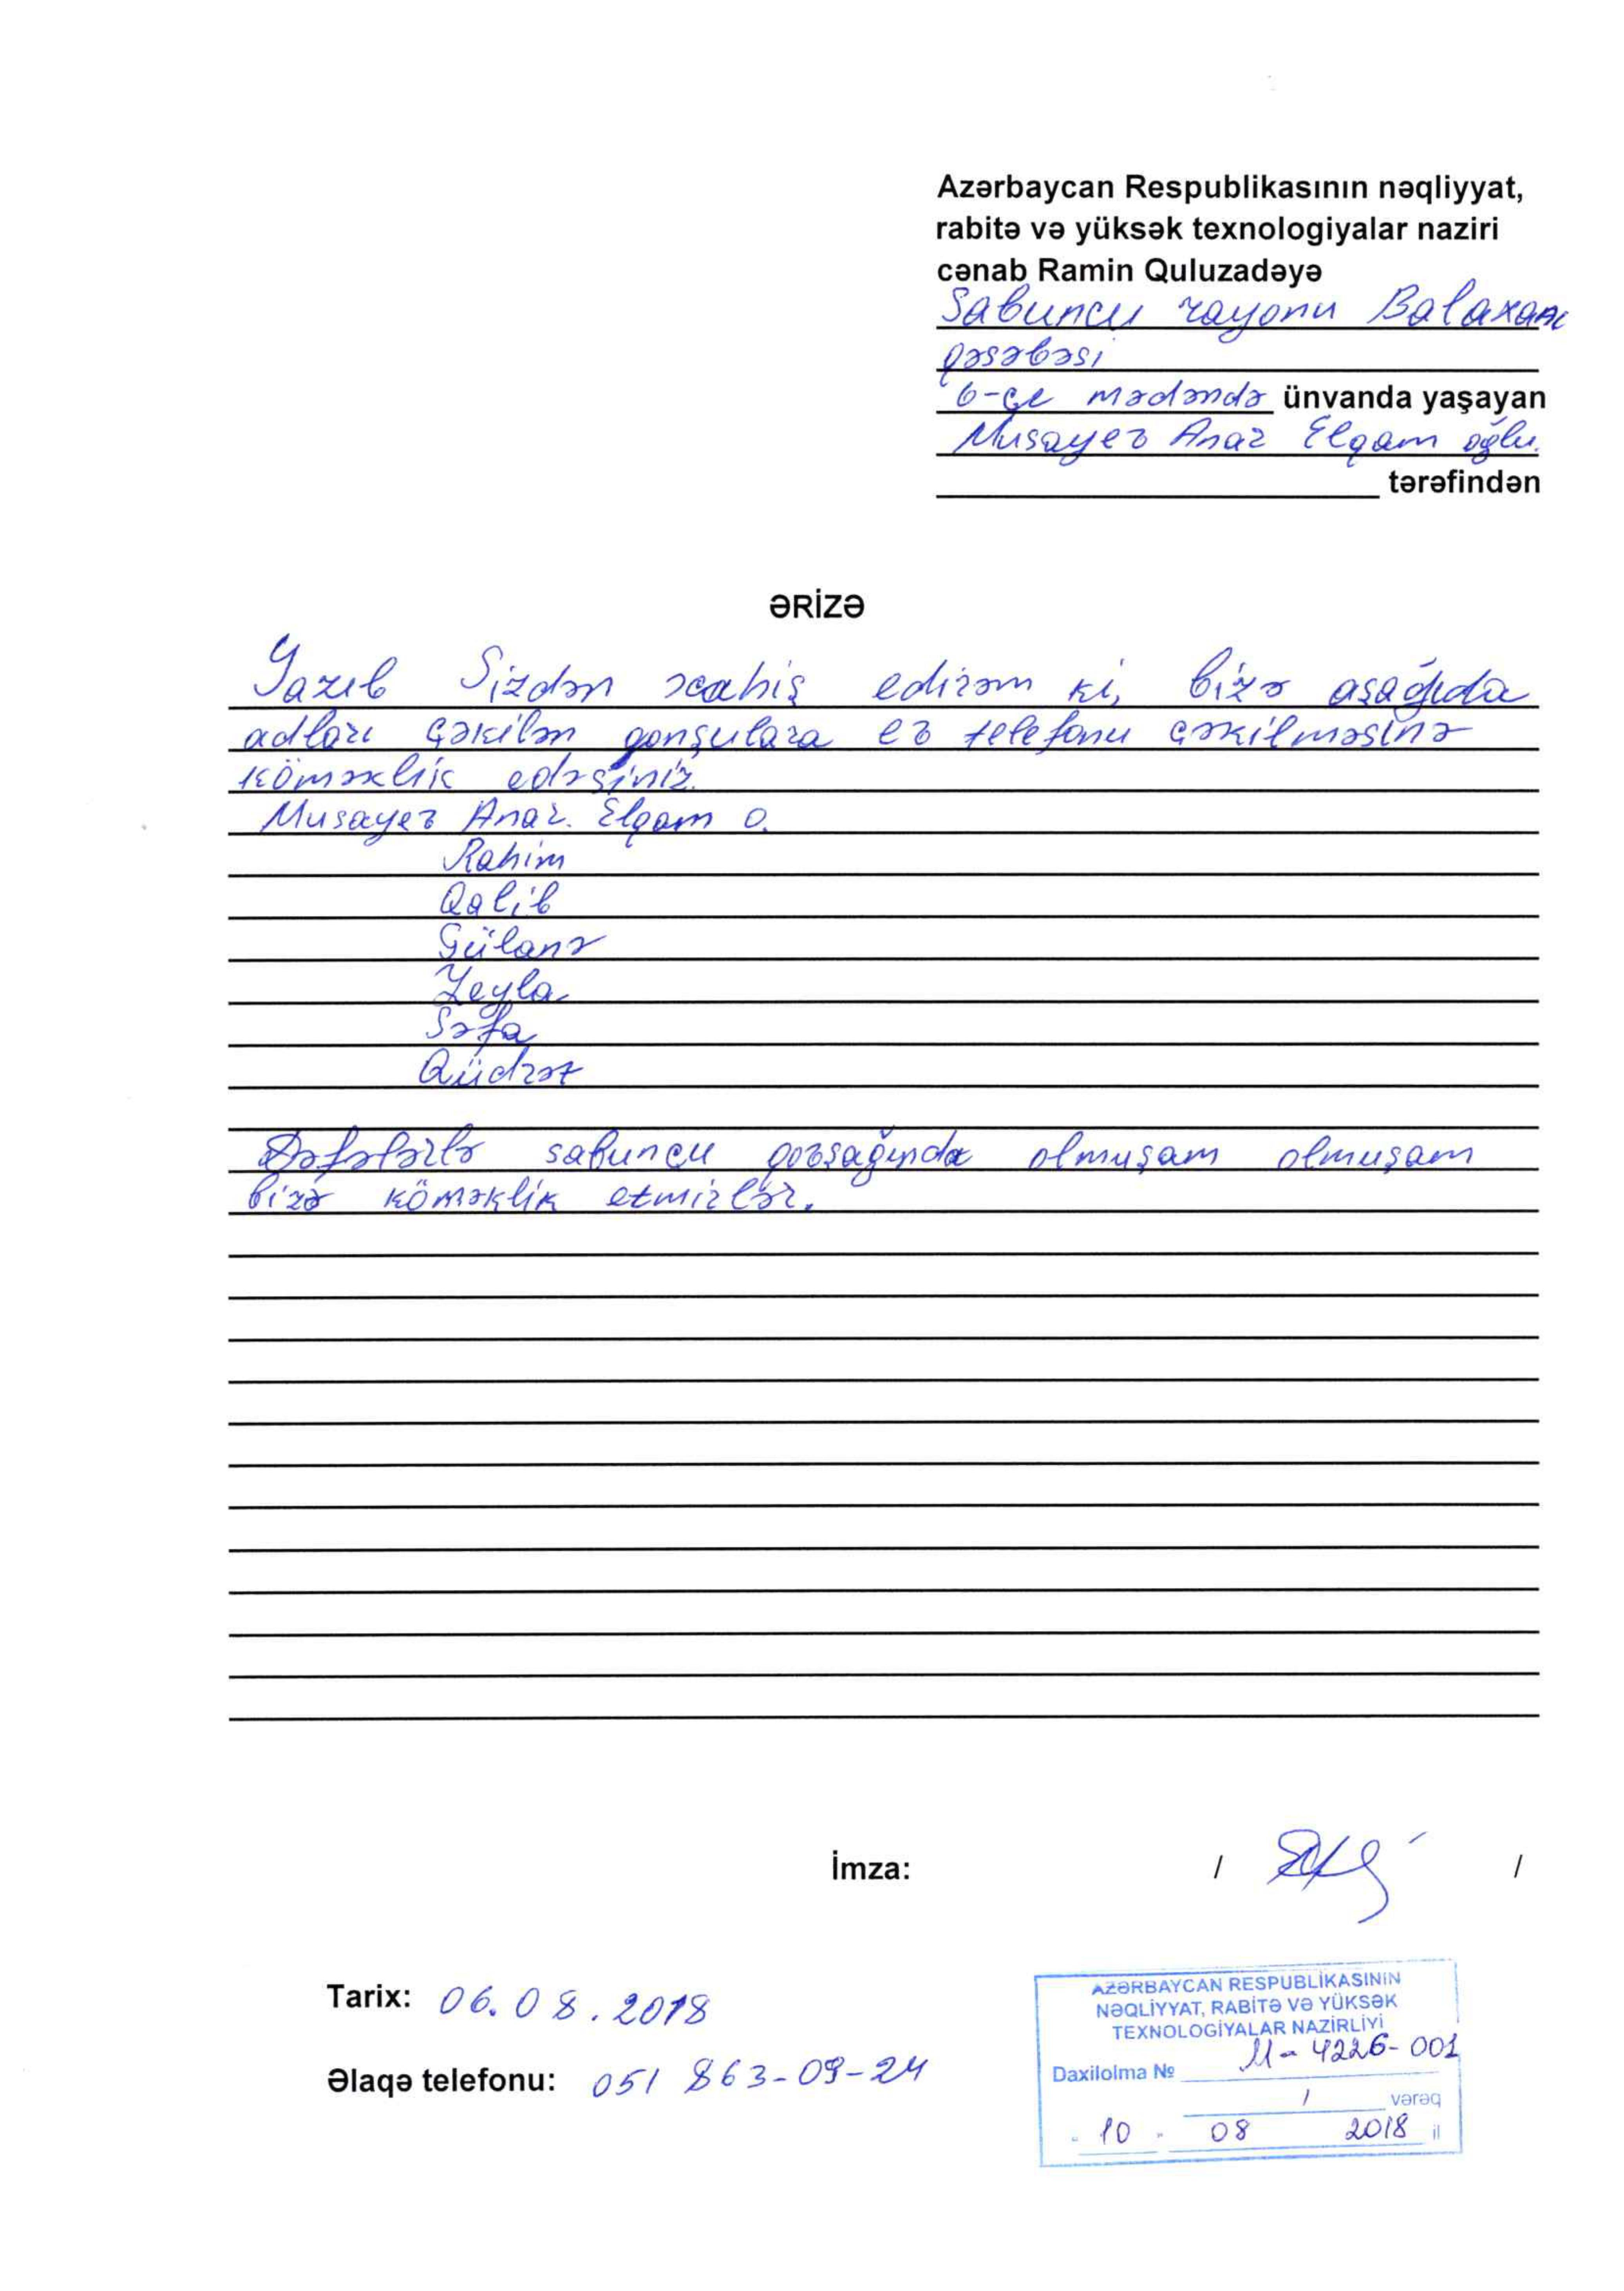 Azərbaycan Respublikasının nəqliyyat,
rabitə və yüksək texnologiyalar naziri
cənab Ramin Quluzadəyə
Sabuncu rayonu Balaxanı
qəsəbəsi
6-çı mədəndə ünvanda yaşayan
Musayev Anar Elqam oğlu.
tərəfindən
ƏRİZƏ
Yazıb Sizdən xahiş edirəm ki, bizə aşağıda
adları çəkilən qonşulara ev telefonu çəkilməsinə
köməklik edəsiniz.
Musayev Anar. Elqam o.
Rahim
Qalib
Gülanə
Leyla
Səfa
Qüdrət
Dəfələrlə sabunçu qovşağında olmuşam olmuşam
bizə köməklik etmirlər.
İmza: / /
Tarix: 06.08.2018
Əlaqə telefonu: 051 863-09-24
AZƏRBAYCAN RESPUBLİKASININ
NƏQLİYYAT, RABİTƏ VƏ YÜKSƏK
TEXNOLOGİYALAR NAZİRLİYİ
Daxilolma № M-4226-001
1 vərəq
10 08 2018 il